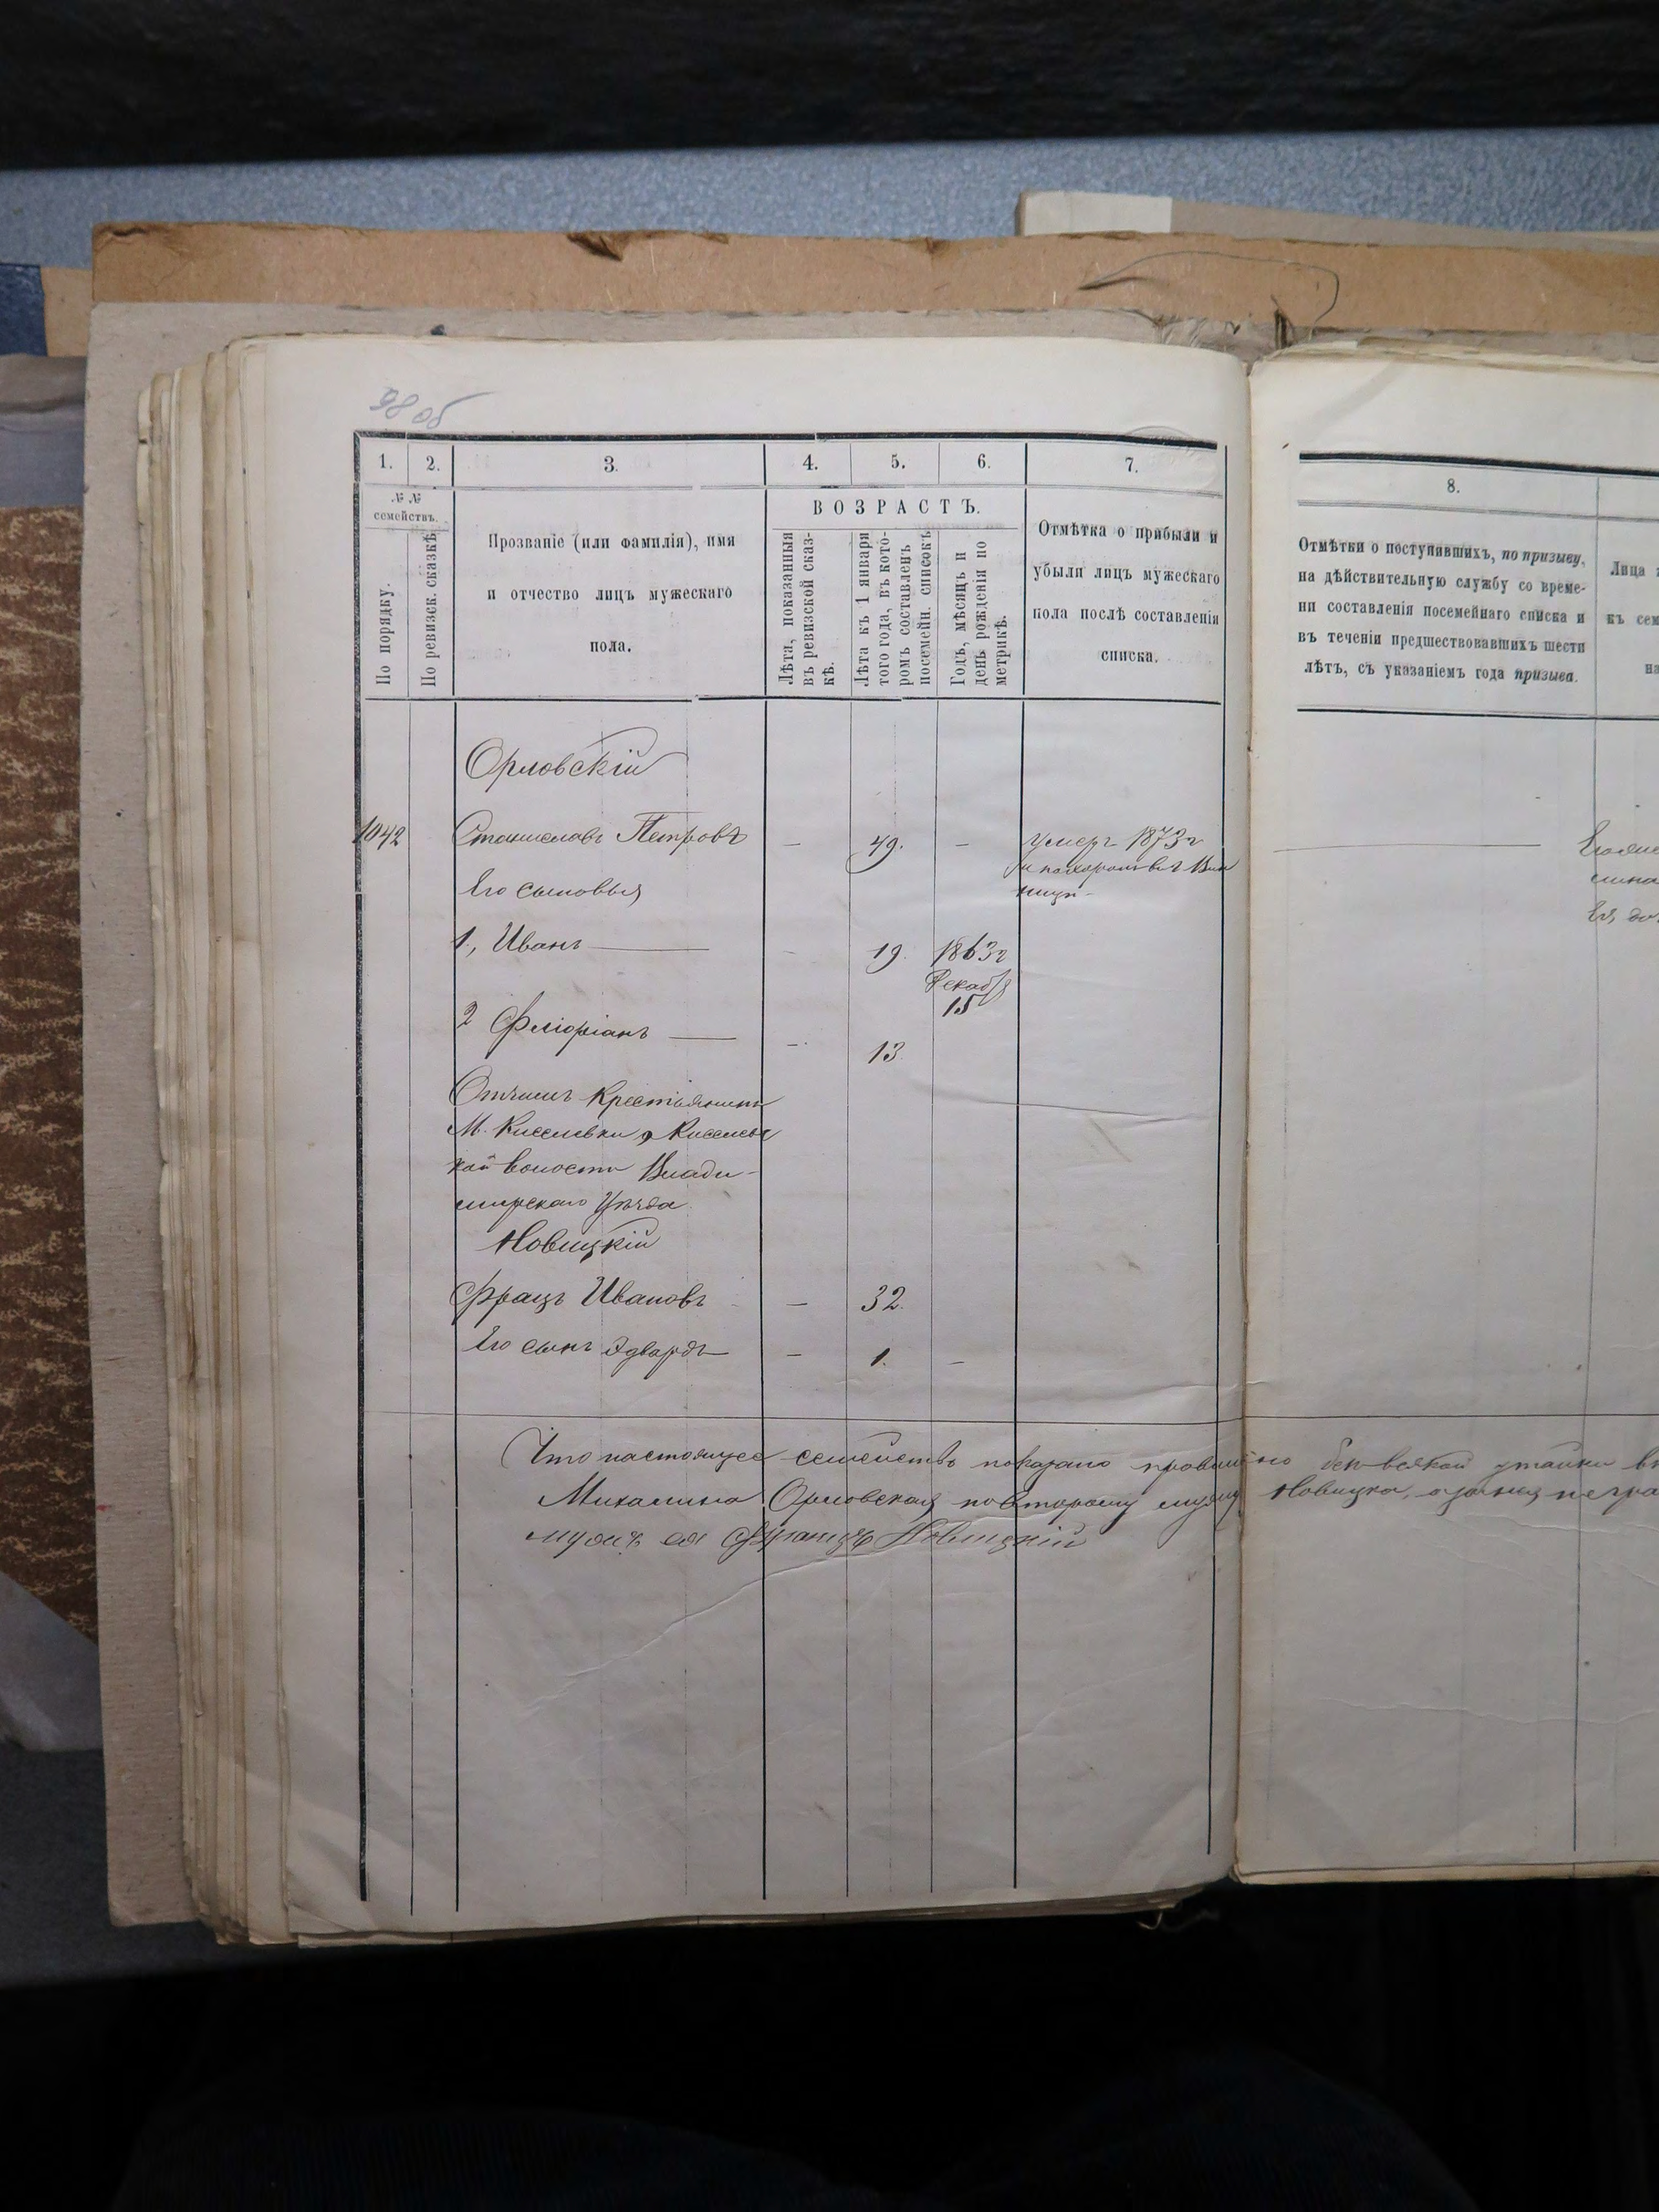 98 об
1. 2. 3. 4. 5. 6. 7.
№ № семействъ.
По порядку.
По ревизск. сказкѣ
Прозваніе (или фамилія), имя
и отчество лицъ мужескаго
пола.
ВОЗРАСТЪ.
Лѣта, показанныя
въ ревизской сказ-
кѣ.
Лѣта къ 1 января
того года, въ кото-
ромъ составленъ
посемейн. списокъ
Годъ, мѣсяцъ и
день рожденія по
метрикѣ.
Отмѣтка о прибыли и
убыли лицъ мужескаго
пола послѣ составленія
списка.
Орловскій
1042 Станиславъ Петровъ — 49. — умеръ 1873г
и похороненъ въ Вин
ницѣ
Его сыновья
1, Иванъ — - 19. 1863г
Декабр
15
2 Флоріанъ — - 13
Отчимъ Крестьянинъ
М. Киселевки, Киселевс
кой волости Влади-
мирскаго Уѣзда
Новицкій
Францъ Ивановъ — 32.
Его сынъ Эдвардъ — 1. —
Что настоящее семейство показано правильно безъ всякой утайки въ
Михалина Орловская по второму мужу Новицка, а за нея негра
мужъ ея Францъ Новицкій
8.
Отмѣтки о поступившихъ, по призыву,
на дѣйствительную службу со време-
ни составленія посемейнаго списка и
въ теченіи предшествовавшихъ шести
лѣтъ, съ указаніемъ года призыва.
Лица
къ сем
на
Ея до